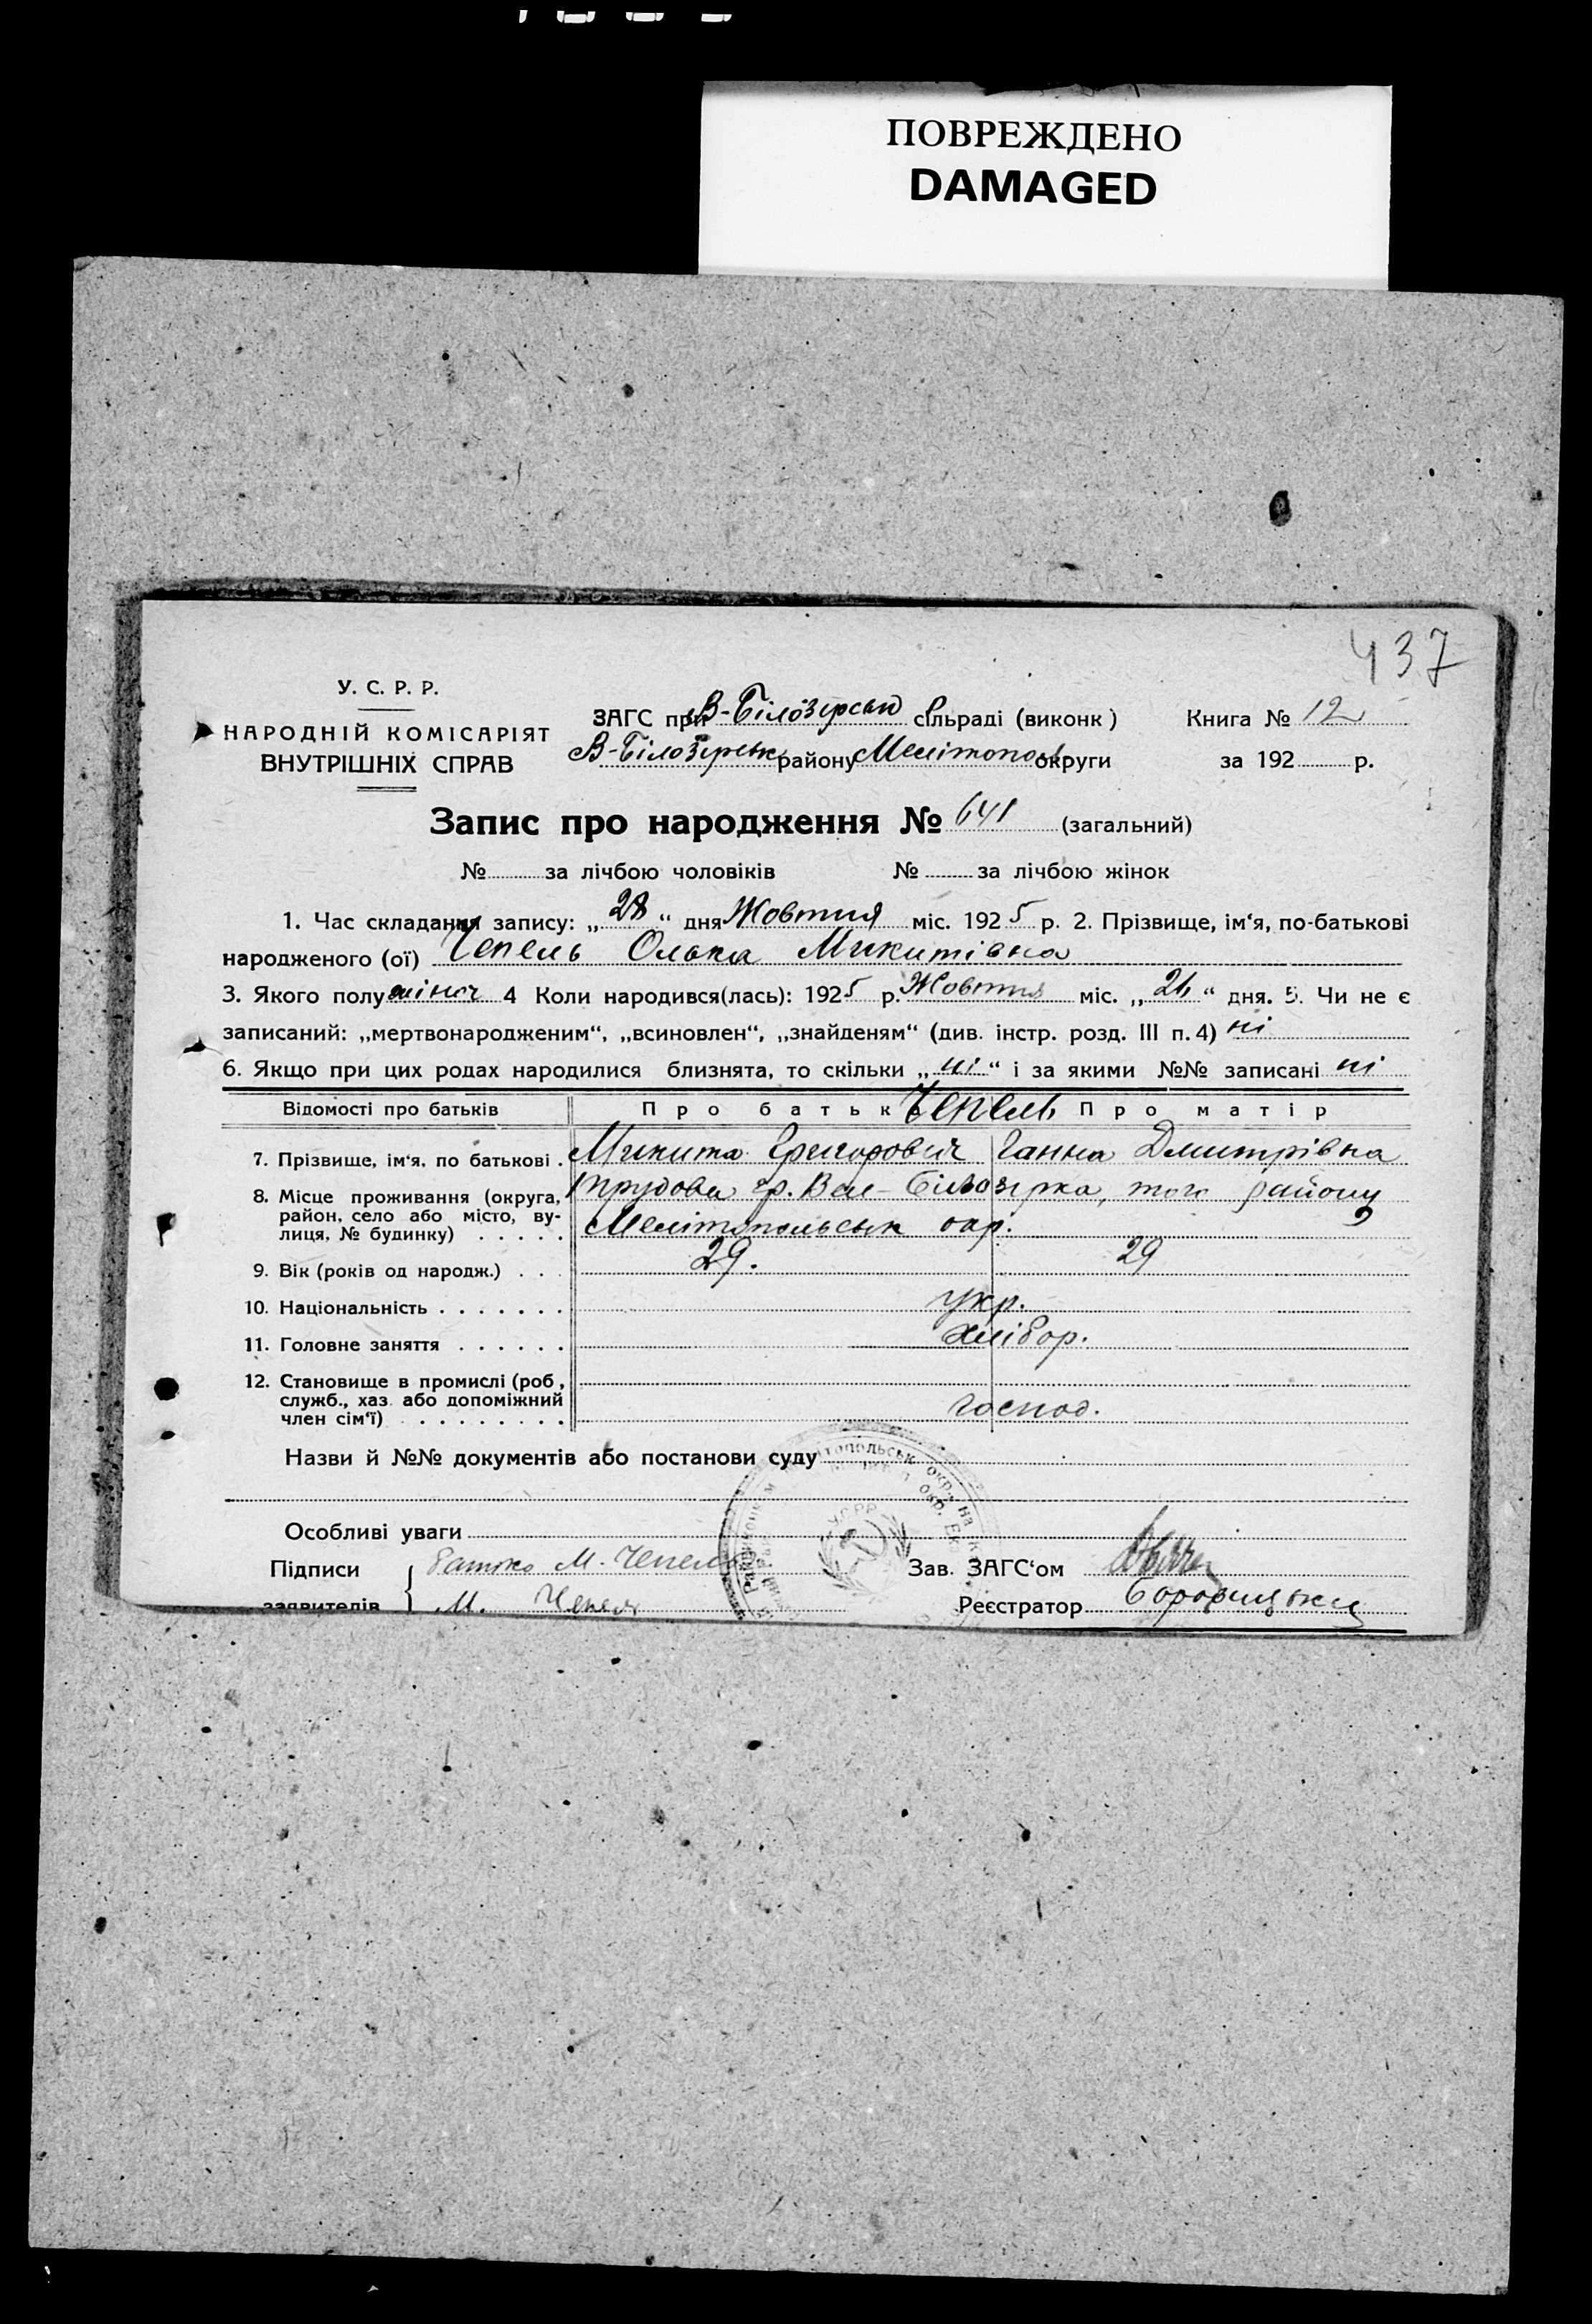 ПОВРЕЖДЕНО
DAMAGED
437
У. С. Р. Р.
НАРОДНІЙ КОМІСАРІЯТ
ВНУТРІШНІХ СПРАВ
ЗАГС при В-Білозерськ сільраді (виконк)
В-Білозерськ району Мелітополь округи
Книга № 12
за 192 р.
Запис про народження № 641 (загальний)
№ за лічбою чоловіків № за лічбою жінок
1. Час складання запису: „28“ дня Жовтня міс. 1925 р. 2. Прізвище, ім‘я, по-батькові
народженого (ої) Чепель Олька Микитівна
3. Якого полу жіноч 4 Коли народився(лась): 1925 р. Жовтня міс. „21“ дня. 5. Чи не є
записаний: „мертвонародженим“, „всиновлен“, „знайденям“ (див. інстр. розд. III п. 4) ні
6. Якщо при цих родах народилися близнята, то скільки „ні“ і за якими №№ записані ні
Відомості про батьків Про батьк Чепель Про матір
7. Прізвище, ім‘я, по батькові . Микита Григорович Ганна Дмитрівна
8. Місце проживання (округа, район, село або місто, вулиця, № будинку) . . . . . Трудова гр. Вел-Білозірка, того району
Мелітопольськ окр.
9. Вік (років од народж.) . . . 29. 29
10. Національність . . . . . . . укр.
11. Головне заняття . . . . . . хлібор.
12. Становище в промислі (роб, служб., хаз або допоміжний член сім‘ї) . . . . . . . . . господ.
Назви й №№ документів або постанови суду
Особливі уваги
Підписи Батько М. Чепель Зав. ЗАГС‘ом
заявителів М. Чепель Реєстратор